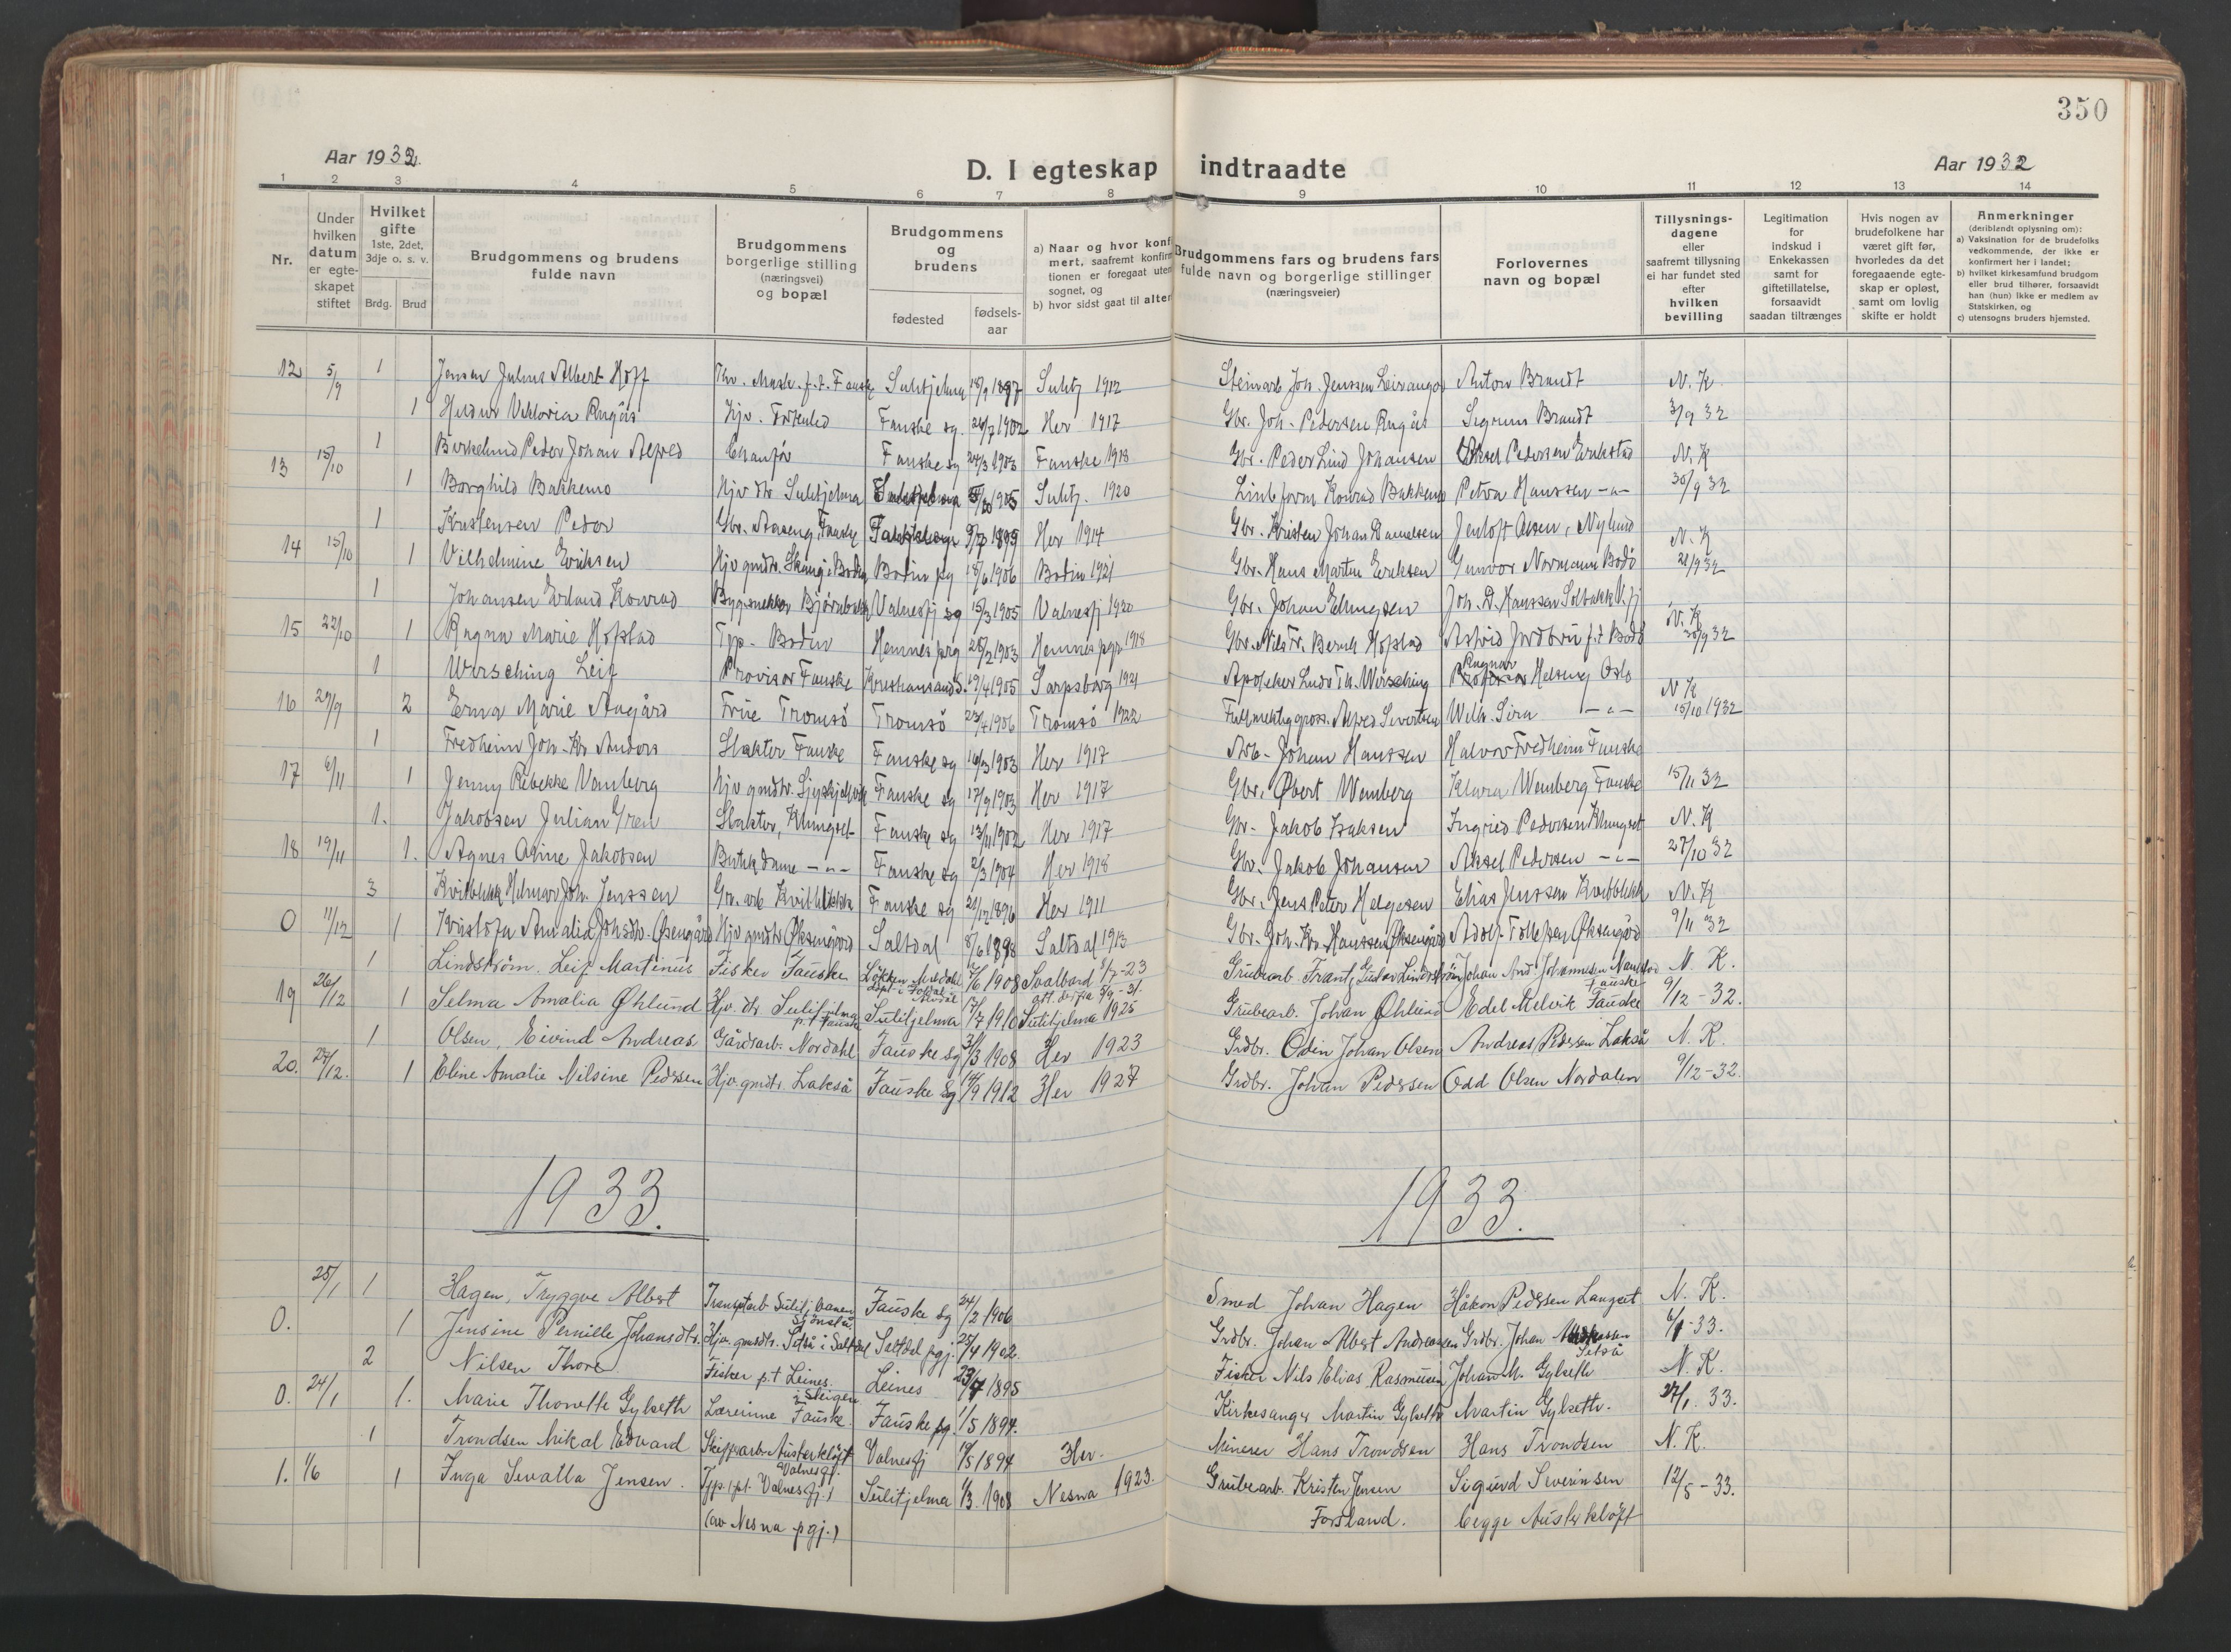 350
Aar 1932.
D. I egteskap indtraadte
Aar 1932
1 2 3 4 5 6 7 8 9 10 11 12 13 14
Nr.
Under hvilken datum er egteskapet stiftet
Hvilket gifte 1ste, 2det, 3dje o. s. v.
Brdg. Brud
Brudgommens og brudens fulde navn
Brudgommens borgerlige stilling (næringsvei) og bopæl
Brudgommens og brudens
fødested
fødsels-aar
a) Naar og hvor konfi
mert, saafremt konfirm
tionen er foregaat uten
sognet, og
b) hvor sidst gaat til alter
Brudgommens fars og brudens fars fulde navn og borgerlige stillinger (næringsveier)
Forlovernes navn og bopæl
Tillysnings-dagene eller saafremt tillysning ei har fundet sted efter hvilken bevilling
Legitimation for indskud i Enkekassen samt for giftetillatelse, forsaavidt saadan tiltrænges
Hvis nogen av brudefolkene har været gift før, hvorledes da det foregaaende egteskap er opløst, samt om lovlig skifte er holdt
Anmerkninger
(deriblandt oplysning om):
a) Vaksination for de brudefolks vedkommende, der ikke er konfirmert her i landet;
b) hvilket kirkesamfund brudgom eller brud tilhører, forsaavidt han (hun) ikke er medlem av Statskirken, og
c) utensogns bruders hjemsted.
12 5/9 1 Jensen Julius Albert Hoff p. t. Fauske Sulitjelma 18/9 1897 Sulitj 1912 Steinarb Joh. Jenssen Leivangen Anton Brandt N. K.
1 Viktoria Rugås Hjv. Fauske sg. 1902 Her 1917 Gbr. Joh. Pedersen Rugås Sigrunn Brandt 3/9 32
13 15/10 1 Birkelund Peder Johan Alfred Chaufør Fauske sg 24/3 1903 Fauske 1918 Gbr. Peder Lind Johansen Aksel Pedersen Erikstad N. K
1 Borghild Bakkemo Hjv dtr Sulitjelma 1905 Sulitj. 1920 Konrad Bakkemo Petra Hanssen -"- 30/9 32
14 15/10 1 Kristensen Peder Gbr. Fauske 1899 Her 1914 Gbr. Kristen Johan Danielsen Jentoft Olsen, Nylund N. K
1 Vilhelmine Eriksen Hjv gmdtr. Skaug i Bodin Bodin pg 1906 Bodin 1921 Gbr. Hans Martin Eriksen Gunvor Normann Bodø 21/9 32
15 22/10 1 Johansen Erland Konrad Bygsnekker Valnesfj sg 15/3 1905 Valnesfj 1920 Gbr. Johan Ellingsen Joh. D. Hanssen Solbakk V.fj N. K
1 Ragna Marie Hopstad Tjp. Bodin Hemnes prg 28/2 1903 Hemnes pgr 1918 Gbr. Nils Fr. Bernh Hopstad Astrid Jordbru p.t Bodø 30/9 32
16 29/9 1 Wersching Leif Provisor Fauske Kristiansand S. 19/4 1905 Sarpsborg 1921 Apoteker Wersching Ragnar Helseng Oslo N K
2 Erna Marie Aagård Frue Tromsø Tromsø 23/4 1906 Tromsø 1922 Alfred Sivertsen Wilh. Sira -"- 15/10 1932
17 6/11 1 Fredheim Joh. Kr. Anders Slakter Fauske Fauske sg 16/3 1903 Her 1917 Arb. Johan Hanssen Halvor Fredheim Fauske
1 Jenny Rebekke Vemberg Hjv gmdtr. Fauske sg 17/9 1903 Her 1917 Gbr. Øbert Wemberg Klara Wemberg Fauske 15/11 32
18 19/11 1. Jakobsen Julian Slakter, Klungset Fauske sg 13/11 1902 Her 1917 Gbr. Jakob Isaksen Ingried Pedersen Klungset N. K
1. Agnes Jakobsen Butikdame -"- Fauske sg 2/3 1904 Her 1918 Gbr. Jakob Johansen Aksel Pedersen -"- 27/10 32
0 11/12 3 Kvitblikk Helmar Joh. Jenssen Gr. arb Kvitblikk Fauske sg 21/12 1896 Her 1911 Gbr. Jens Peter Helgesen Elias Jenssen Kvitblikk N. K
1 Kristofa Amalia Johsdtr. Øksengård Hjv gmdtr Øksengård Saltdal 1898 Saltdal 1913 Gbr. Joh. Kr. Hanssen Øksengård Adolf Tollefsen Øksengård 9/11 32
19 26/12 1 Lindstrøm. Leif Martinus Fisker Fauske Løkken Meldal 1908 Svalbard 8/7-23 Grubearb. Frantz Gustav Lindstrøm Johan And. Johannesen Fauske N. K.
1 Selma Amalia Øhlund Hjv. dtr. Sulitjelma p.t Fauske Sulitjelma 17/7 1910 Sulitjelma 1925 Grubearb. Johan Øhlund Edel Melvik Fauske 9/12-32.
20. 27/12. 1 Olsen, Eivind Andreas Gårdsarb. Nordahl Fauske sg 31/3 1908 Her 1923 Grdbr. Odin Johan Olsen Andreas Pedersen Lakså N. K.
1 Eline Amalie Nilsine Pedersen Hjv. gmdtr. Lakså Fauske sg 1912 Her 1927 Grdbr. Johan Pedersen Odd Olsen Nordalen 9/12-32.
1933. 1933.
0. 25/1 1 Hagen, Tryggve Albert Transptarb Sulitj.banen Sjönstå Fauske sg 24/2 1906 Smed Johan Hagen Håkon Pedersen Langset N. K.
1 Jensine Pernille Johansdtr. Hjv. gmdtr. Setså i Saltdal Saltdal pgj. 25/4 1902. Grdbr. Johan Albert Andreassen Grdbr. Johan Andreassen Setså 6/1-33.
0. 24/1 2 Nilsen Thore Fisker p.t Leines i Steigen Leines 23/7 1895 Fisker Nils Elias Rasmussen Johan M. Gylseth N. K.
1. Marie Thonette Gylseth Lærerinne Fauske. Fauske pg. 1/5 1894. Kirkesanger Martin Gylseth Martin Gylseth. 27/1. 33.
1. 1/6 1 Trondsen Mikal Edvard Austerkløft Valnesfj. Valnesfj 1894 Her. Minerer Hans Trondsen Hans Trondsen N. K.
1 Inga Sevalla Jensen. Tjp. (pt. Valnesfj.) Sulitjelma 1/3. 1908 Nesna 1923. Grubearb. Kristen Jensen Sigurd Severinsen 12/5-33.
(av Nesna pgj.) Forsland. begge Austerkløft